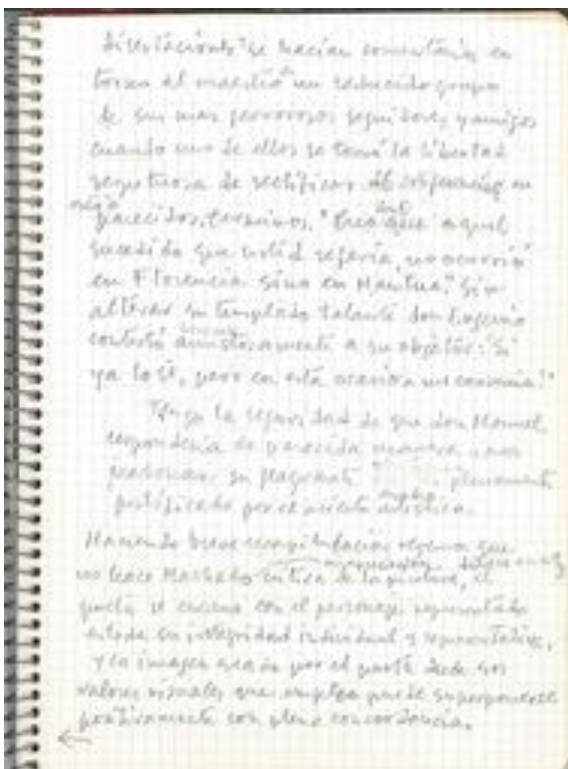 disertaciones" se hacían comentarios en
torno al maestro un reducido grupo
de sus mas fervorosos seguidores y amigos
cuando uno de ellos se tomó la libertad
respetuosa de rectificar al conferenciante en
parecidos terminos, "Creo que aquel
sucedido que usted referia, no ocurrió
en Florencia sino en Mantua." Sin
alterar su templado talante don Eugenio
contestó amistosamente a su objetor: "Si
ya lo sé, pero en esta ocasion me convenia."
Tengo la seguridad de que don Manuel
responderia de parecida manera
su flagrante plenamente
justificado por el acierto artistico.
Haciendo breve
no hace Machado critica de la pintura, el
poeta se encara con el personaje representado
en toda su integridad individual y representativa,
y la imagen creada por el poeta desde los
valores visuales que emplea puede superponerse
positivamente con plena concordancia.